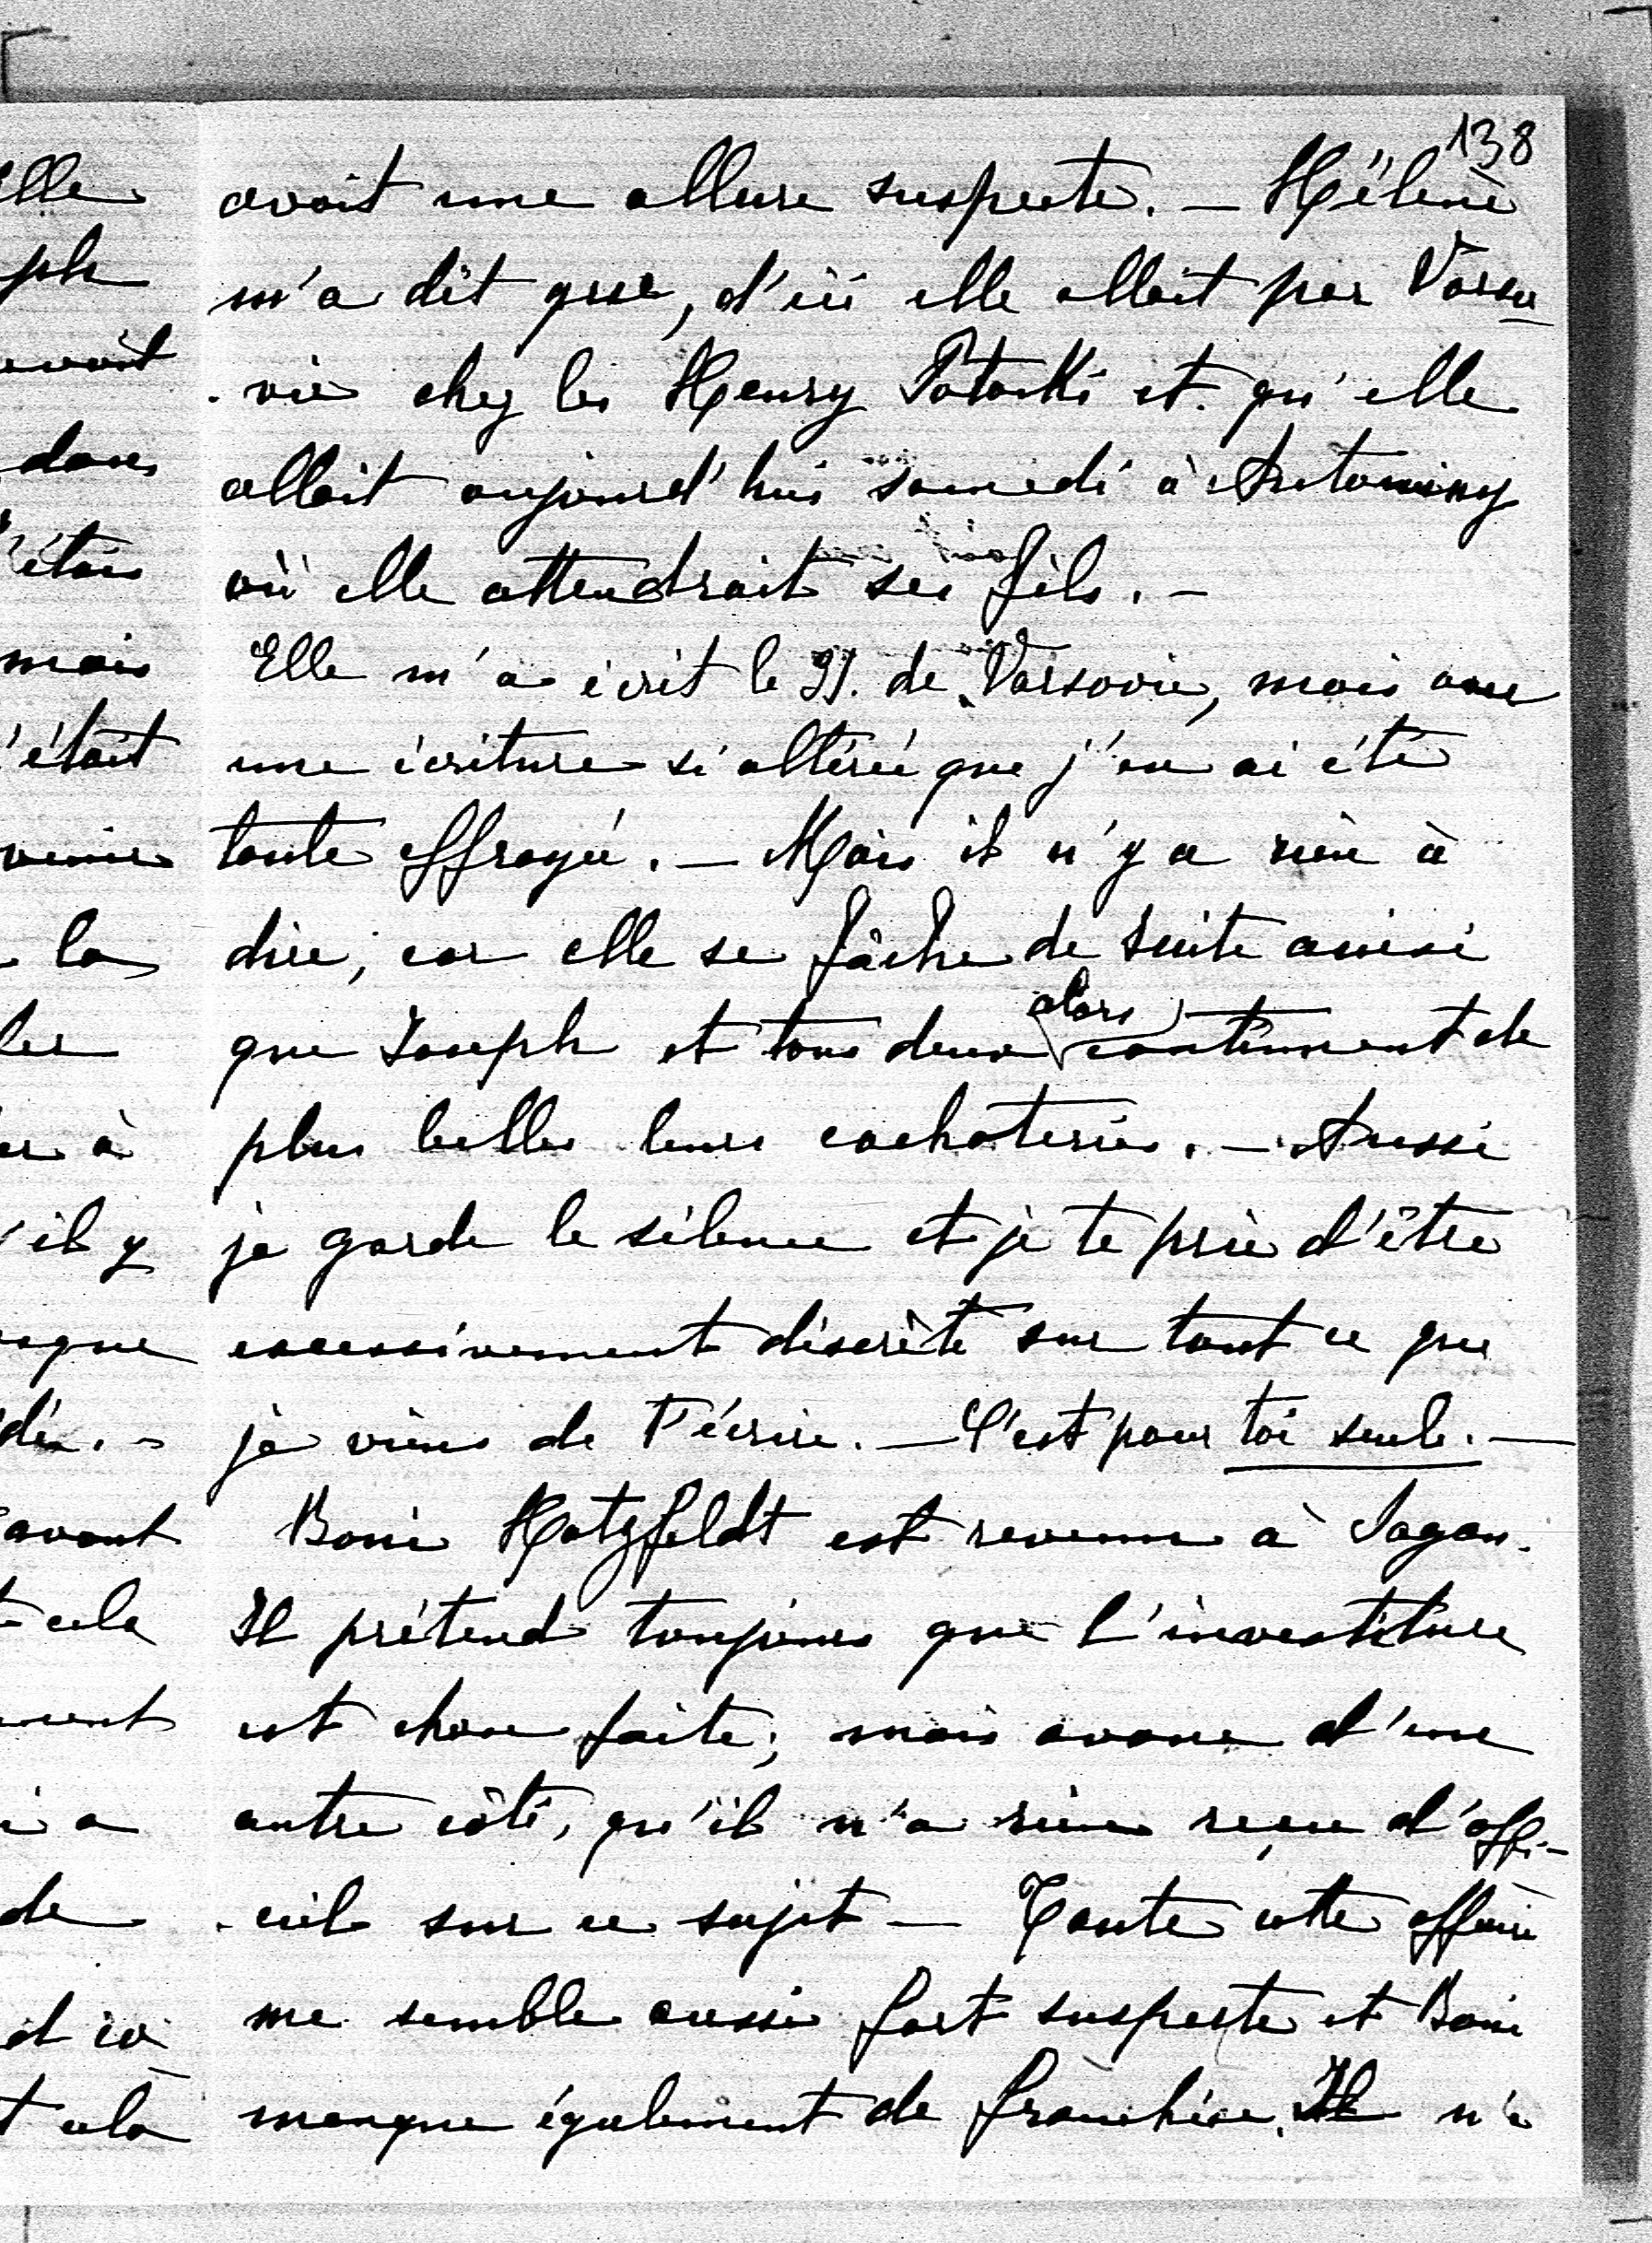 138
avait une allure suspecte. — Hélène
m'a dit que, d'ici elle allait par Varso
-vie chez les Henry Potocki et qu'elle
allait aujourd'hui samedi à Antoniny
où elle attendrait ses fils. —
Elle m'a écrit le 31. de Varsovie, mais avec
une écriture si altérée que j'en ai été
toute effrayée. — Mais il n'y a rien à
dire, car elle se fâche de suite ainsi
que Joseph et tous deux alors continuent de
plus belle leurs cachoteries. — Aussi
je garde le silence et je te prie d'être
excessivement discrète sur tout ce que
je viens de t'écrire. — C'est pour toi seule. —
Boni Hatzfeldt est revenu à Sagan.
Il prétend toujours que l'investiture
est chose faite; mais avoue d'une
autre côté, qu'il n'a rien reçu d'offi-
-ciel sur ce sujet — Toute cette affaire
me semble aussi fort suspecte et Boni
manque également de franchise. Il n'a
elle
ph
avait
dans
étais
mais
'était
venir
la
les
er à
'il y
que
di. -
avant
cela
ment
i a
de
cela